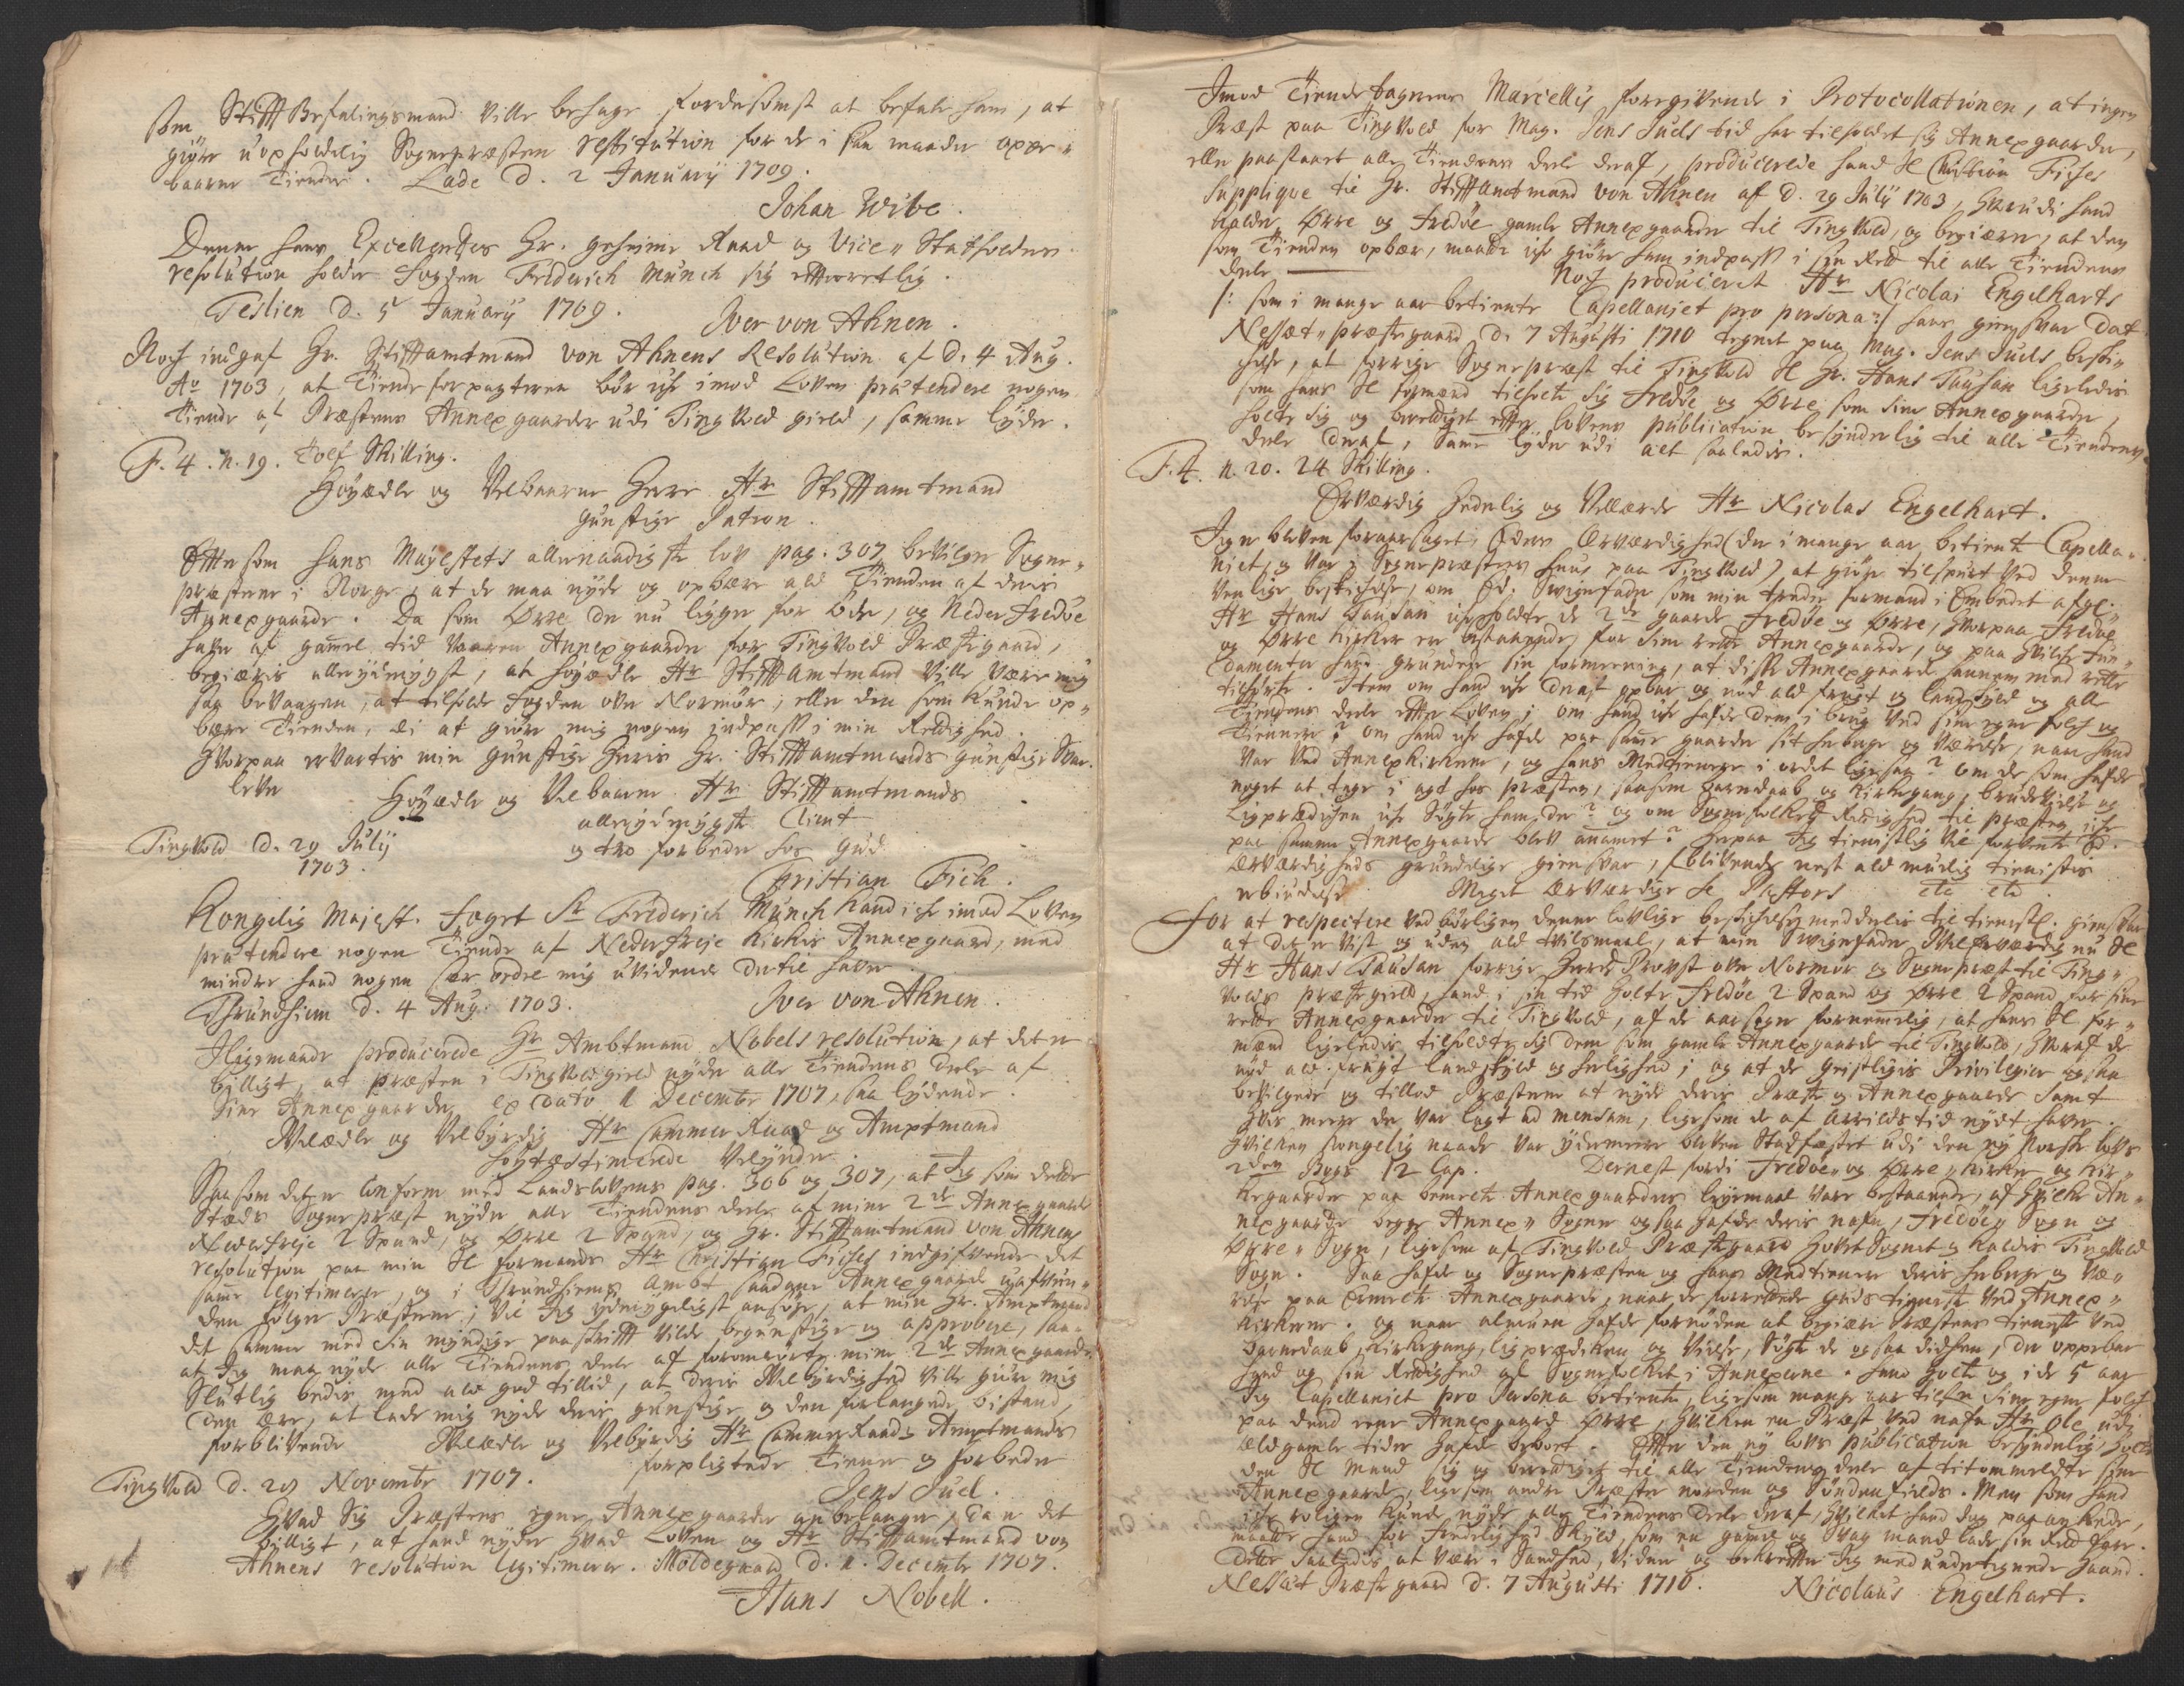 som Stifft Befalingsmand ville behage fordersomst at befale ham, at
giøre uopholdelig Sognepræsten restitution for de i saa maader opper„
baarne Tiender. Lade d. 2 January 1709.
Johan Wibe.
Denne hans Excellentzes Hr. geheime Raad og Vice„ Statholders
resolution holder Fogden Friderich Munch sig efterretlig.
Teslien d. 5 January 1709. Iver von Ahnen.
Noch indgaf Hr. Stifftamtmand von Ahnens Resolution af d. 4 Aug.
Ao 1703, at Tiende forpagteren bør iche imod Loven prætendere nogen
Tiende af Præstens Annexgaarder udi Tingvold gield, samme lyder.
F. 4. N. 19. Tolf Skilling.
Høyædle og Velbaarne Herre Hr Stifftamtmand
gunstige Patron.
Efftersom Hans Mayestets allernaadigste lov pag. 307 bevilger Sogne„
præsterne i Norge, at de maa nyde og opbære ald Tienden af deris
Annexgaarde. Da som Ørre der nu ligger for øde, og Neder Fredøe
hafver af gamel tid vaaren Annexgaarder for Tingvold Præstegaard,
begiæris allerydmygst, at høyædle Hr Stifftamtmand ville være mig
saa bevaagen, at tilholde Fogden over Normør, eller den som kunde op„
bære Tienden, ei at giøre mig nogen indpass i min Rettighed.
Hvorpaa ervartis min gunstige Herris Hr. Stifftamtmands gunstige Svar.
lever Høyædle og Velbaarne Hr Stifftamtmands
allerydmygste Client
Tingvold d. 29 July og tro forbeder hos Gud
1703. Christian Fich.
Kongelig Mayest. Foget Sr Friderich Munch kand iche imod Loven
prætendere nogen Tiende af Nederfreje Kirkis Annexgaard, med
mindre hand nogen sær ordre mig uvidende dertil hafver.
Thrundhiem d. 4 Aug. 1703. Iver von Ahnen.
Ligemaade producerede Hr Ambtmand Nobels resolution, at det er
billigt, at Præsten i Tingvoldgield nyder alle Tiendens deele af
Sine Annexgaarder, ex dato 1 Decembr 1707, saa lydende.
Velædle og Velbyrdig Hr Cammer Raad og Amptmand
høytæstimerede Velynder.
Saasom det er conform med Landslovens pag. 306 og 307, at Jeg som dette
Stæds Sognepræst nyder alle Tiendens deele af mine 2de Annexgaarde
Nederfreje 2 Spand, og Ørre 2 Spand, og Hr. Stifftamtmand von Ahnens
resolution paa min Sl formands Hr Christian Fiches indgifvende det
samme legitimerer, og i Thrundhiems Ambt saadane Annexgaarde uafkun„
den følger Præsterne, Vil Jeg ydmygeligst ansøge, at min Hr. Amptmand
det samme med Sin myndige paaskrifft vilde begunstige og approbere, saa„
at Jeg maa nyde alle Tiendens deele af foromrørte mine 2de Annexgaarde
Slutlig bedis med ald god tillid, at deris Velbyrdighed ville giøre mig
den ære, at lade mig nyde deris gunstige og den forlangede bistand,
forblivende Velædle og Velbyrdig Hr Cammer Raads Amptmands
forpligtede Tiener og forbeder
Tingvold d. 29 Novembr 1707. Jens Juel.
Hvad Sig Præstens egne Annexgaarder anbelanger, da er det
billigt, at hand nyder hvad Loven og Hr Stifftamtmand von
Ahnens resolution legitimerer. Moldegaard d. 1. Decembr 1707.
Hans Nobell.
Imod Tiendetagerens Marcelly foregivende i Protocollationen, at ingen
Præst paa Tingvold for Mag. Jens Juels tid har tilholdet sig Annexgaarder,
eller paastaaet alle Tiendens deele deraf, producerede hand Sl Christian Fiches
Supplique til Hr. Stifftamtmand von Ahnen af d. 29 July 1703, hvorudi hand
kalder Ørre og Fredøe gamle Annexgaarder til Tingvold, og begiærer, at den
som Tienden opbær, maatte iche giøre ham indpass i sin Rett til alle Tiendens
deele Noch produceret Hr Nicolai Engelharts
/: som i mange aar betiente Capellaniet pro persona:/ hans giensvar dat.
Nessæt„ præstegaard d. 7 Augusti 1710 tegnet paa Mag. Jens Juels beski„
chelse, at forrige Sognepræst til Tingvold Sl Hr. Hans Pausan ligeledis
som hans Sl formend tilholte sig Fredøe og Ørre som sine Annexgaarde,
holte sig og bereettiget efter lovens publication besynderlig til alle Tiendens
deele deraf, samme lyder udi alt saaledis.
F. 4. N. 20. 24 Skilling.
Ærværdig hæderlig og Vellærde Hr Nicolas Engelhart.
Jeg er bleven foraarsaget, Eders Ærværdighed (der i mange aar betiente Capella„
niet, og var i Sognepræstens huus paa Tingvold) at giøre tilspurt ved denne
venlige beskichelse, om Ed. Svigerfader som min tredie formand i Embedet afgl.
Hr Hans Pausan iche holdte de 2de gaarde Fredøe og Ørre, hvorpaa Fredøe
og Ørre Kirker ere bestaaende, for Sine rette Annexgaarde, og paa hvilche fun„
damenter hand grundede sin formeening, at disse Annexgaarde hannem med rette
tilhørte. Item om hand iche deraf opbar og nød ald frugt og landskyld og alle
Tiendens deele efter Loven; om hand iche hafde dem i brug ved sine egne folch og
Tiennere? om hand iche hafde paa samme gaarde sit herberge og værelse, naar hand
var ved Annexkirkerne, og hans Medtienere i ordet ligesaa? om de som hafde
noget at tage i agt hos præsten, saasom barndaab og Kirkegang, brudevielse og
Ligprædichen iche søgte ham der? og om Sognefolkets Rettighed til præsten iche
paa samme Annexgaarde blev anamet? herpaa Jeg tienstlig vil forvente Ed.
Ærværdigheds grundelige giensvar, forblivende nest ald muelig tienistis
erbiudelse Meget Ærværdige Hr Pastors etc etc.
For at respectere ved børligen denne lovlige beskichelse meddelis til tienstl. giensvar
at det er vist og uden ald tvilsmaal, at min Svigerfader Velærværdig nu Sl
Hr Hans Pausan forrige Herrets Provst over Normør og Sognepræst til Ting„
volds præstegield, hand i sin tid holte Fredøe 2 Spand og Ørre 2 Spand for sine
rette Annexgaarder til Tingvold, af de aarsager fornemmelig, at hans Sl for„
mænd ligeledis tilholdte sig dem som gamle Annexgaarde til Tingvold, hvoraf de
nød ald frugt landskyld og herlighed; og at de Geistligis Privilegier ogsaa
bevilgede og tillod Præsterne at nyde deris Præste og Annexgaarde samt
hvis meere der var lagt ad mensam, ligesom de af Arrilds tid nydt hafver.
Hvilken Kongelig naade var ydermeere bleven Stadfæstet udi den ny Norske lovs
2den Bogs 12 Cap. Dernest fordi Fredøe„ og Ørre„ Kirker og Kir„
kegaarder paa bemelte Annexgaarders leyermaal vare bestaaende, af hvilke An„
nexgaarde begge Annex„ Sogner ogsaa hafde deris nafn, Fredøe„ Sogn og
Ørre„ Sogn, ligesom af Tingvold Præstegaard Hovet Sognet og kaldis Tingvold
Sogn. Saa hafde og Sognepræsten og hans Medtienere deris herberge og væ„
relse paa bemelte Annexgaarde, naar de forrettede guds tieneste ved Annex„
kirkerne. og naar almuen hafde fornøden at begiære Præstens tieneste ved
Barnedaab, Kirkegang, ligprædiken og Vielse, søgte de ogsaa didhen, der oppebar
hand og sin Rettighed af Sognefolket i Annexerne. hand holte og i de 5 aar
Jeg Capellaniet pro Persona betiente, ligesom mange aar tilforn sine egne folch
paa dend eene Annexgaard Ørre, hvilken en Præst ved nafn Hr Ole udi
ældgamle tider hafde beboet. Effter den ny lovs publication besynderlig holte
den Sl Mand sig og bereettiget til alle Tiendens deele af titommeldte sine
Annexgaarde, ligesom andre Præster norden og Sønden fields. Men som hand
iche roligen kunde nyde alle Tiendens deele deraf, hvilket hand dog paa ankede,
maatte hand for fredelighed Skyld, som en gamel og Svag mand lade sin Rett fare.
Dette saaledis at være i Sandhed, Vidner og bekreffter Jeg med underteignede haand.
Nessæt Præstegaard d. 7 Augusti 1710. Nicolaus Engelhart.